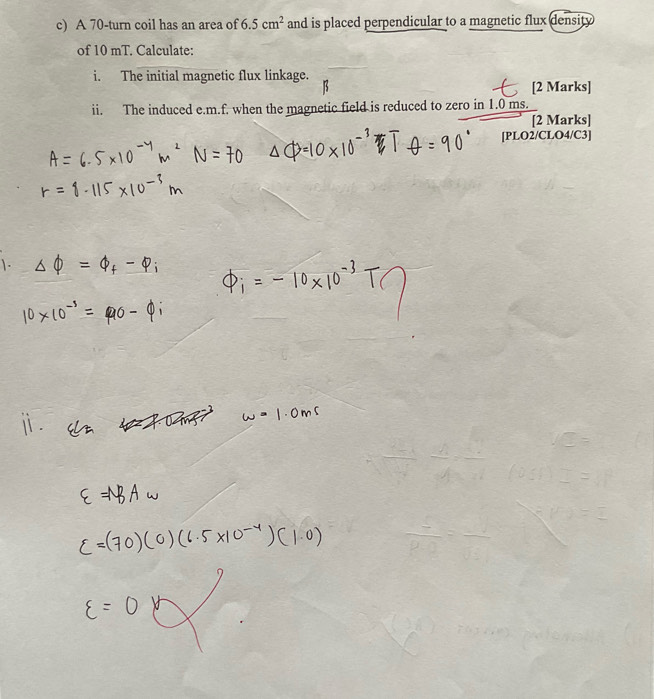 c) A 70-turn coil has an area of 6.5 cm² and is placed perpendicular to a magnetic flux density
of 10 mT. Calculate:
i. The initial magnetic flux linkage.
B t [2 Marks]
ii. The induced e.m.f. when the magnetic field is reduced to zero in 1.0 ms.
[2 Marks]
[PLO2/CLO4/C3]
A = 6.5×10⁻⁴ m² N = 70 ΔΦ=10×10⁻³ T θ = 90°
r = 8.115×10⁻³ m
i. Δφ = φf - φi
φi = -10×10⁻³ T ?
10×10⁻³ = 0 - φi
ii. w = 1.0ms
ε = NBAw
ε = (70)(0)(6.5×10⁻⁴)(1.0)
ε = 0 V